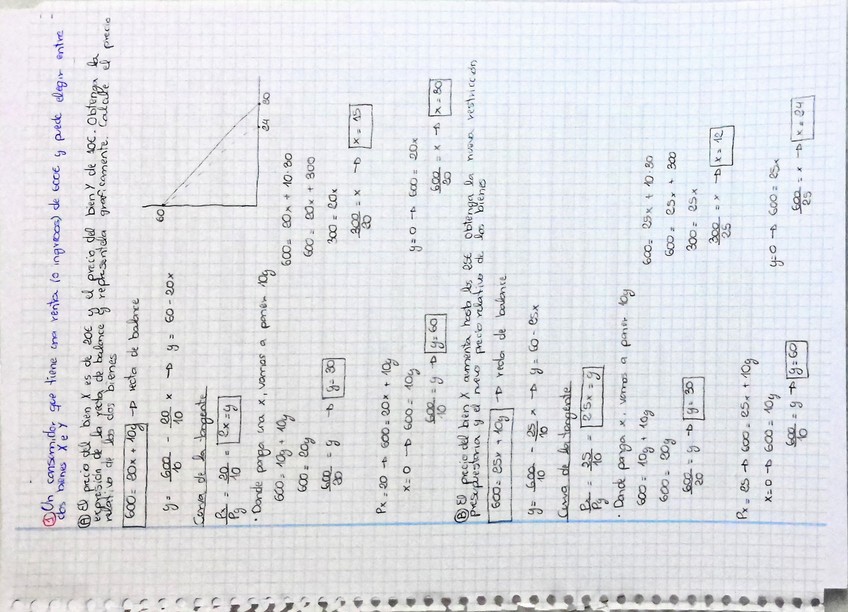 ① Un consumidor que tiene una renta (o ingresos) de 600€ y puede elegir entre
dos bienes X e Y
Ⓐ El precio del bien X es de 20€ y el precio del bien Y de 10€. Obtenga la
expresión de la recta de balance y represéntela gráficamente. Calcule el precio
relativo de los dos bienes
600 = 20x + 10y → recta de balance
y = 600/10 - 20/10 x → y = 60 - 20x
60
24 30
Curva de la tangente
Px/Py = 20/10 = 2x = y
· Donde ponga una x, vamos a poner 10y
600 = 10y + 10y
600 = 20y
600/20 = y → y = 30
600 = 20x + 10·30
600 = 20x + 300
300 = 20x
300/20 = x → x = 15
Px = 20 → 600 = 20x + 10y
x = 0 → 600 = 10y
600/10 = y → y = 60
y = 0 → 600 = 20x
600/20 = x → x = 30
Ⓑ El precio del bien X aumenta hasta los 25€ Obtenga la nueva restricción
presupuestaria y el nuevo precio relativo de los bienes
600 = 25x + 10y → recta de balance
y = 600/10 - 25/10 x → y = 60 - 25x
Curva de la tangente
Px/Py = 25/10 = 2'5x = y
· Donde ponga x, vamos a poner 10y
600 = 10y + 10y
600 = 20y
600/20 = y → y = 30
600 = 25x + 10·30
600 = 25x + 300
300 = 25x
300/25 = x → x = 12
Px = 25 → 600 = 25x + 10y
x = 0 → 600 = 10y
600/10 = y → y = 60
y = 0 → 600 = 25x
600/25 = x → x = 24